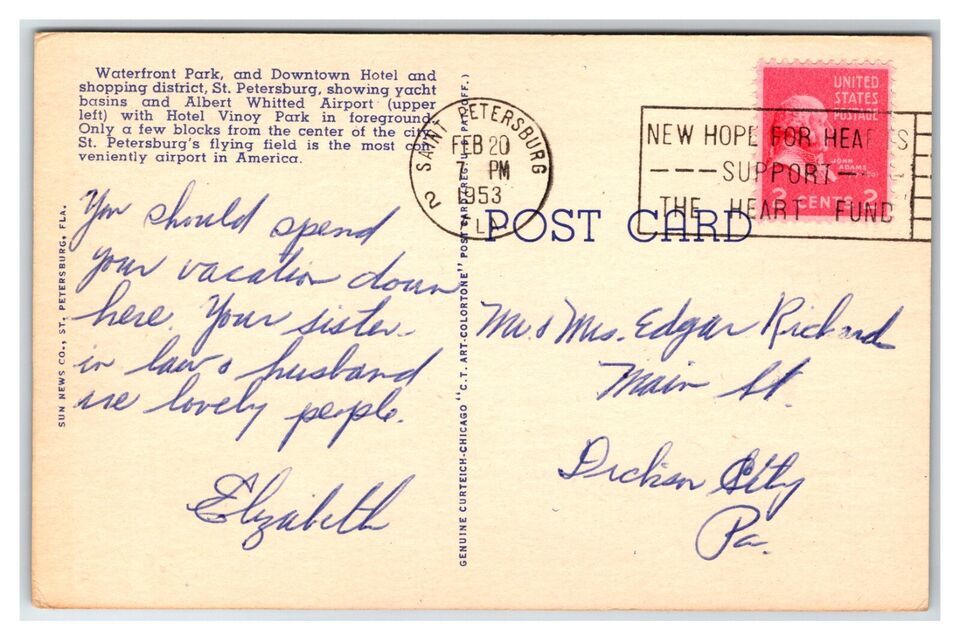 Waterfront Park, and Downtown Hotel and
shopping district, St. Petersburg, showing yacht
basins and Albert Whitted Airport (upper
left) with Hotel Vinoy Park in foreground.
Only a few blocks from the center of the city
St. Petersburg's flying field is the most con-
veniently airport in America.
You should spend
your vacation down
here. Your sister-
in law & husband
are lovely people.
Elizabeth
SUN NEWS CO., ST. PETERSBURG, FLA.
GENUINE CURTEICH-CHICAGO "C. T. ART-COLORTONE" POST CARD (REG. U. S. PAT. OFF.)
SAINT PETERSBURG
FEB 20
7 PM
1953
FLA
2
NEW HOPE FOR HEARTS
SUPPORT
THE HEART FUND
UNITED
STATES
POSTAGE
JOHN
ADAMS
2 CENTS 2
POST CARD
Mr. & Mrs. Edgar Richard
Main St.
Dickson City
Pa.